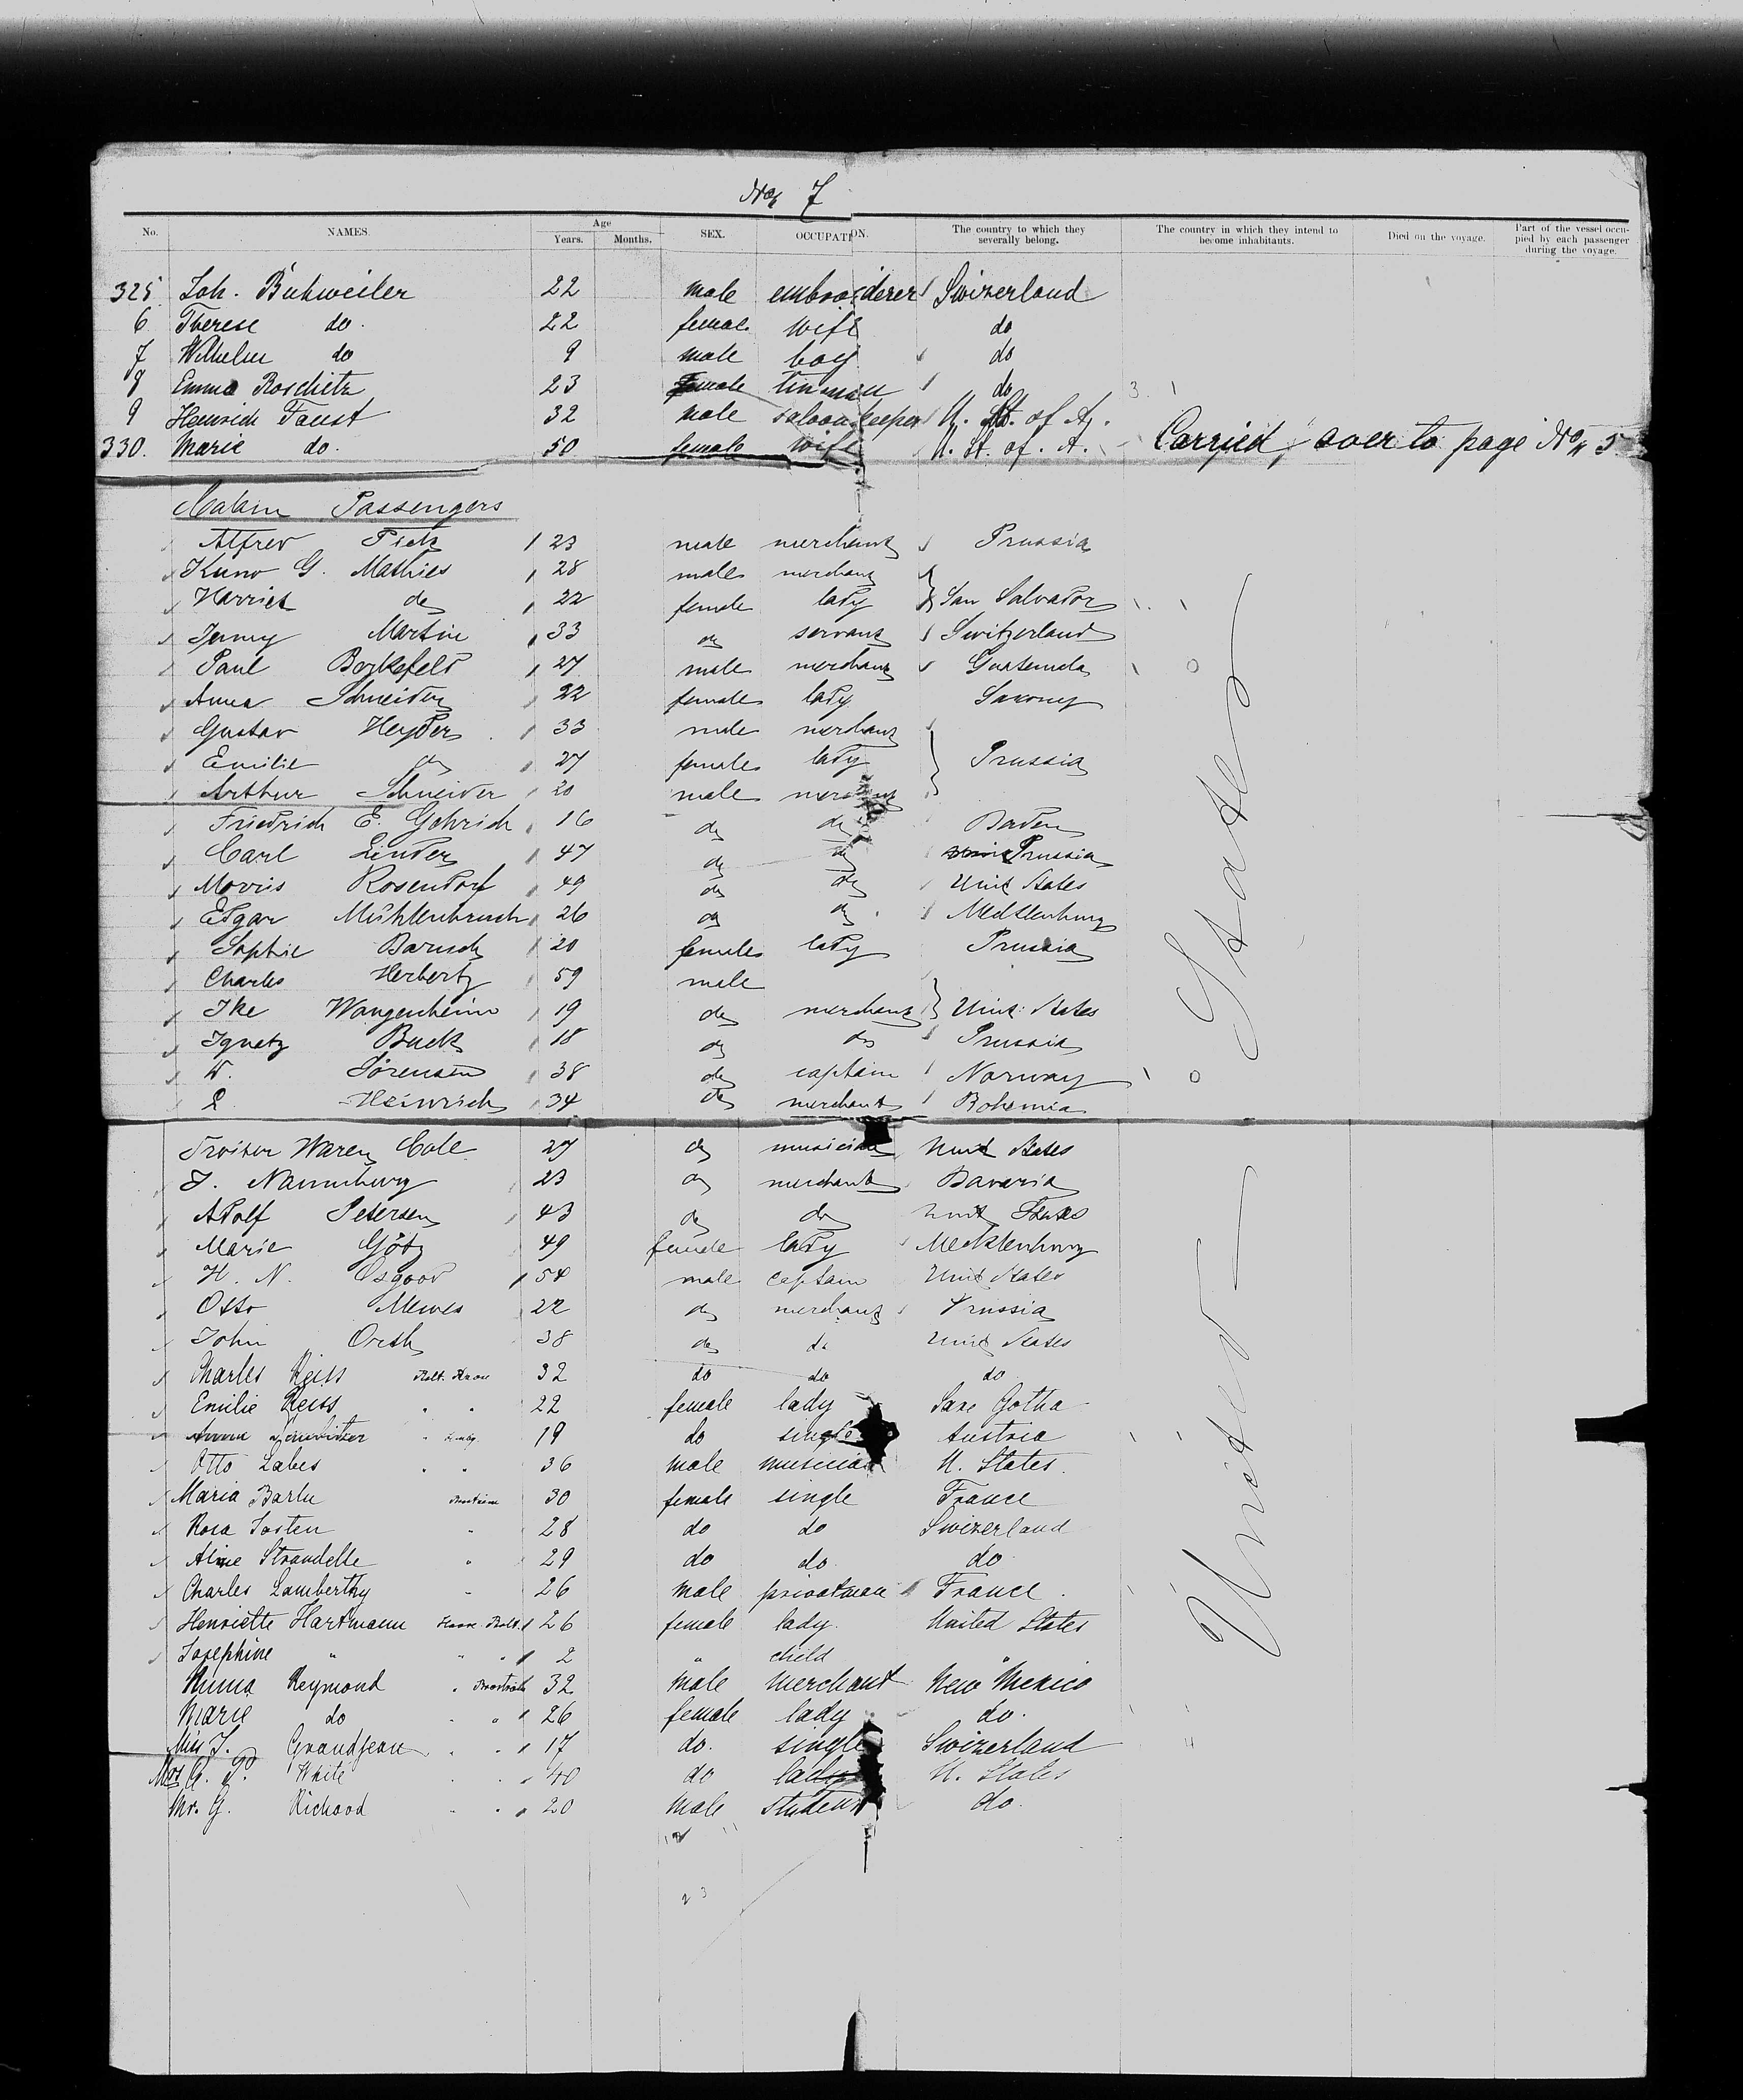 No. 7
No. NAMES. Age Years. Months. SEX. OCCUPATION. The country to which they severally belong. The country in which they intend to become inhabitants. Died on the voyage. Part of the vessel occupied by each passenger during the voyage.
325. Joh. Bühweiler 22 male embroiderer Swizerland
6 Therese do. 22 female wife do
7 Wilhelm do 9 male boy do
8 Emma Roschitz 23 female tinman do
9 Heinrich Faust 32 male saloonkeeper U. St. of A.
330. Marie do. 50 female wife U. St. of. A. Carried over to page No. 5
Cabin Passengers
Alfred 23 male merchant Prussia
Kuno G. Mathies 28 male merchant
Harriet do 22 female lady San Salvador
Jenny Martin 33 do servant Switzerland
Paul Berkefeld 27 male merchant Guatemala
Anna Schneider 22 female lady Saxony
Gustav Heyder 33 male merchant
Emilie do 27 female lady Prussia
Arthur Schneider 20 male merchant
Friedrich E. Gehrich 16 do do Baden
Carl Linder 47 do do Prussia
Morris Rosendorf 49 do do Unit States
Edgar Mühlenbruch 26 do do Mecklenburg
Sophie Baruch 20 female lady Prussia
Charles Herbertz 59 male
Ike Wangenheim 19 do merchant Unit. States
Ignatz Buck 18 do do Prussia
W. Sörensen 38 do captain Norway
Heinrich 34 do merchant Bohemia
Waren Cole 27 do musician Unit States
J. Naumburg 23 do merchant Bavaria
Adolf Petersen 43 do do Unit States
Marie Götz 49 female lady Mecklenburg
H. N. Osgood 54 male captain Unit States
Otto Mewes 22 do merchant Prussia
John Orth 38 do do Unit States
Charles Reiss 32 do do do
Emilie Reiss " " 22 female lady Saxe Gotha
Anna 19 do single Austria
Otto Labes " " 36 male musician U. States
Maria Barlu 30 female single France
Rosa Josten " 28 do do Swizerland
Aline Strandelle " 29 do do do
Charles Lamberthy " 26 male privatman France
Henriette Hartmann 26 female lady United States
Josephine " " " 2 " child "
Numa Reymond " 32 male merchant New Mexico
Marie do " " 26 female lady do.
Miss J. Grandjean " " 17 do. single Swizerland
Mrs White " " 40 do lady U. States
Mr. G. Richard " " 20 male student do
United States